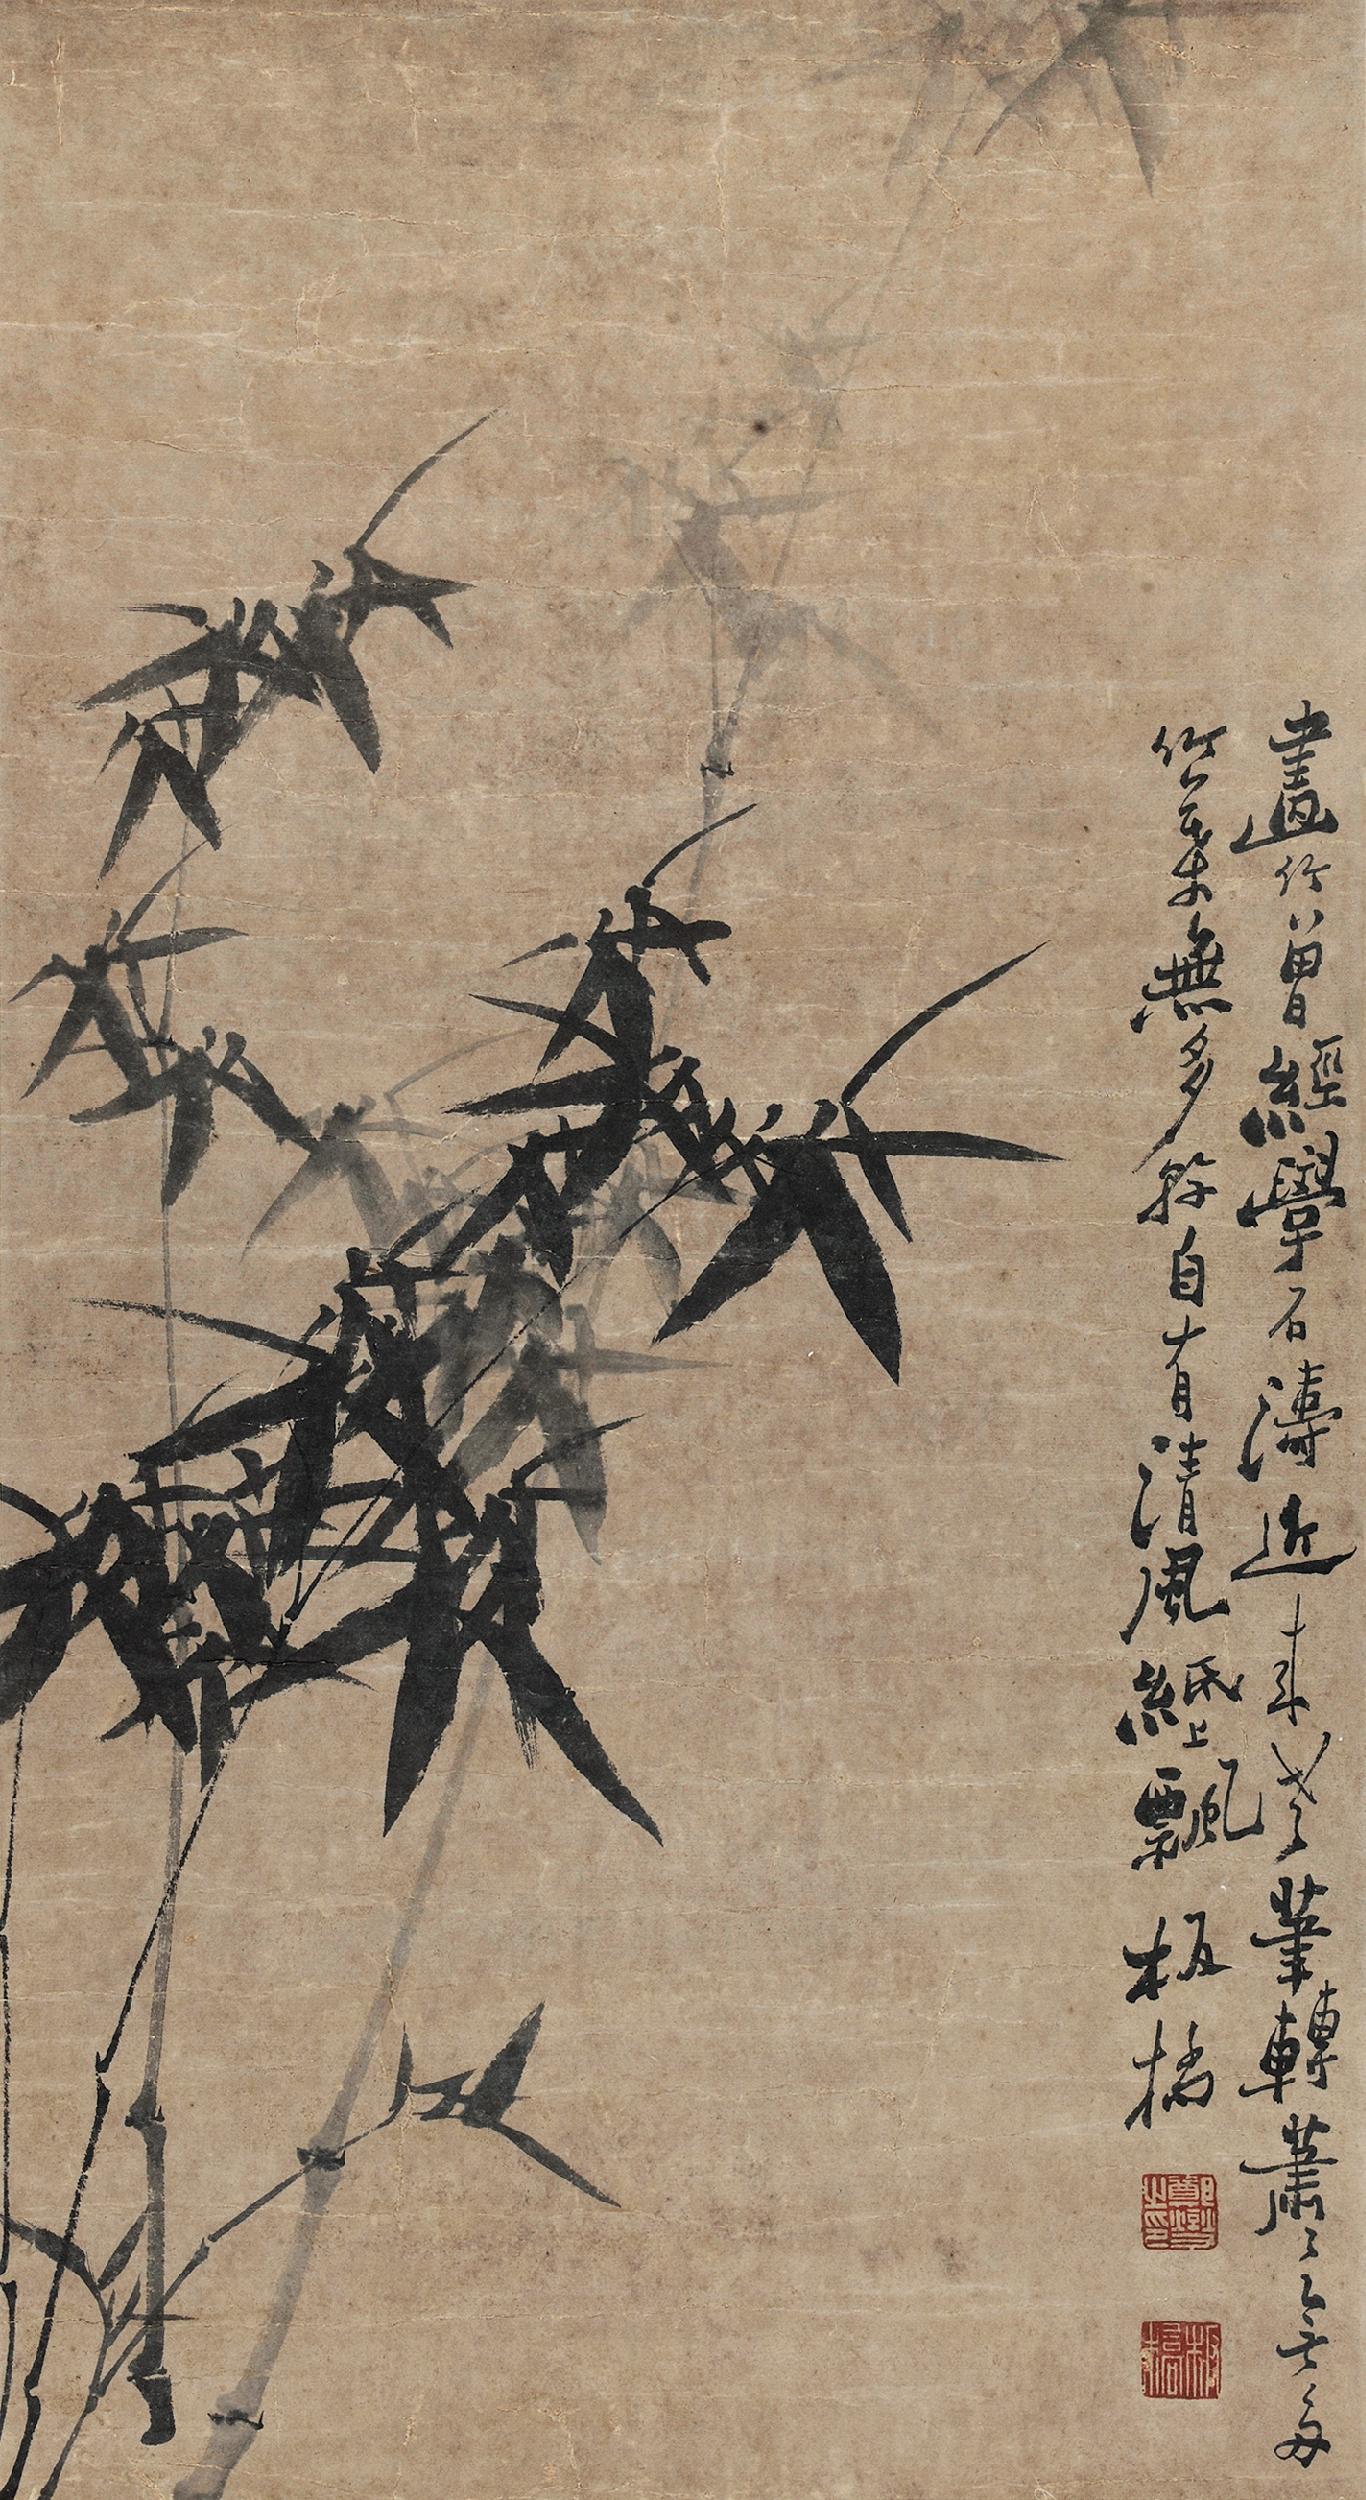 畫竹曾經學石濤近來老筆轉蕭〻无多
竹葉無多幹自有清風紙上飄 板橋
鄭燮之印
板橋